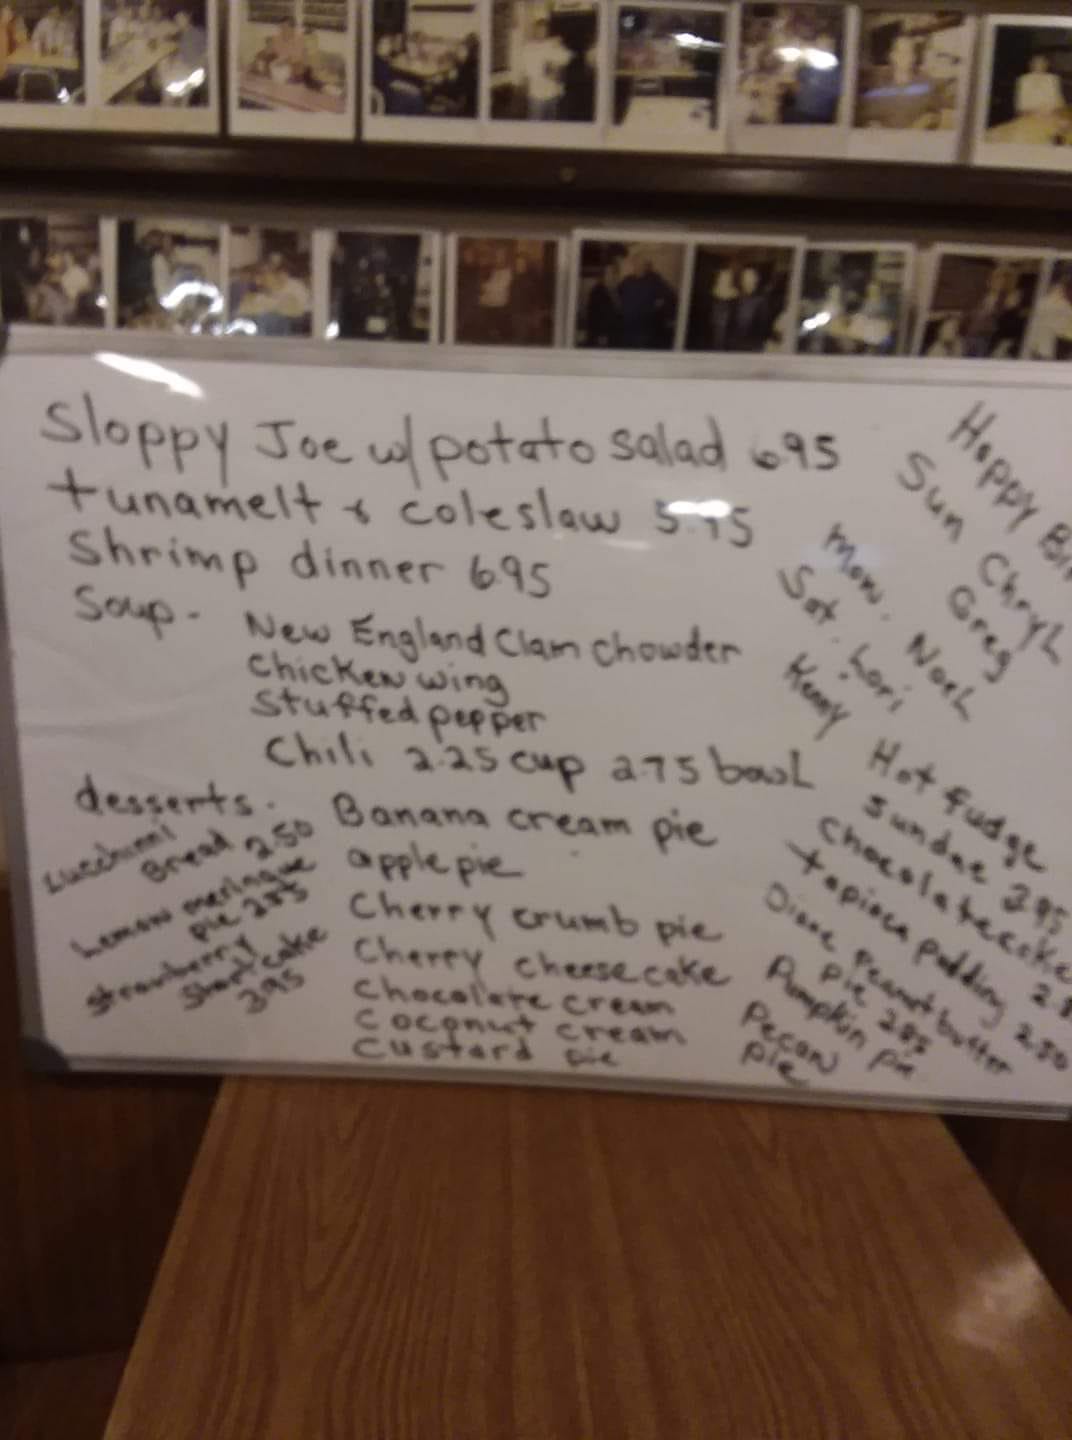 Sloppy Joe w/ potato salad 6.95
tunamelt & coleslaw 5.95
Shrimp dinner 6.95
Soup - New England Clam Chowder
Chicken wing
Stuffed pepper
Chili 2.25 cup 2.75 bowL
desserts.
Zucchinni
Bread 2.50
Lemon meringue
pie 2.85
Strawberry
Shortcake
3.95
Banana cream pie
apple pie
Cherry crumb pie
Cherry cheesecake
Chocolate cream
Coconut cream
Custard pie
Happy Bir
Sun Cheryl
Greg
Mon. NoeL
Sat. Lori
Kenny
Hot fudge
Sundae 3.95
Chocolate cake
tapioca pudding 2.50
Diane Peanut butter
pie 2.85
Pumpkin pie
Pecan
pie